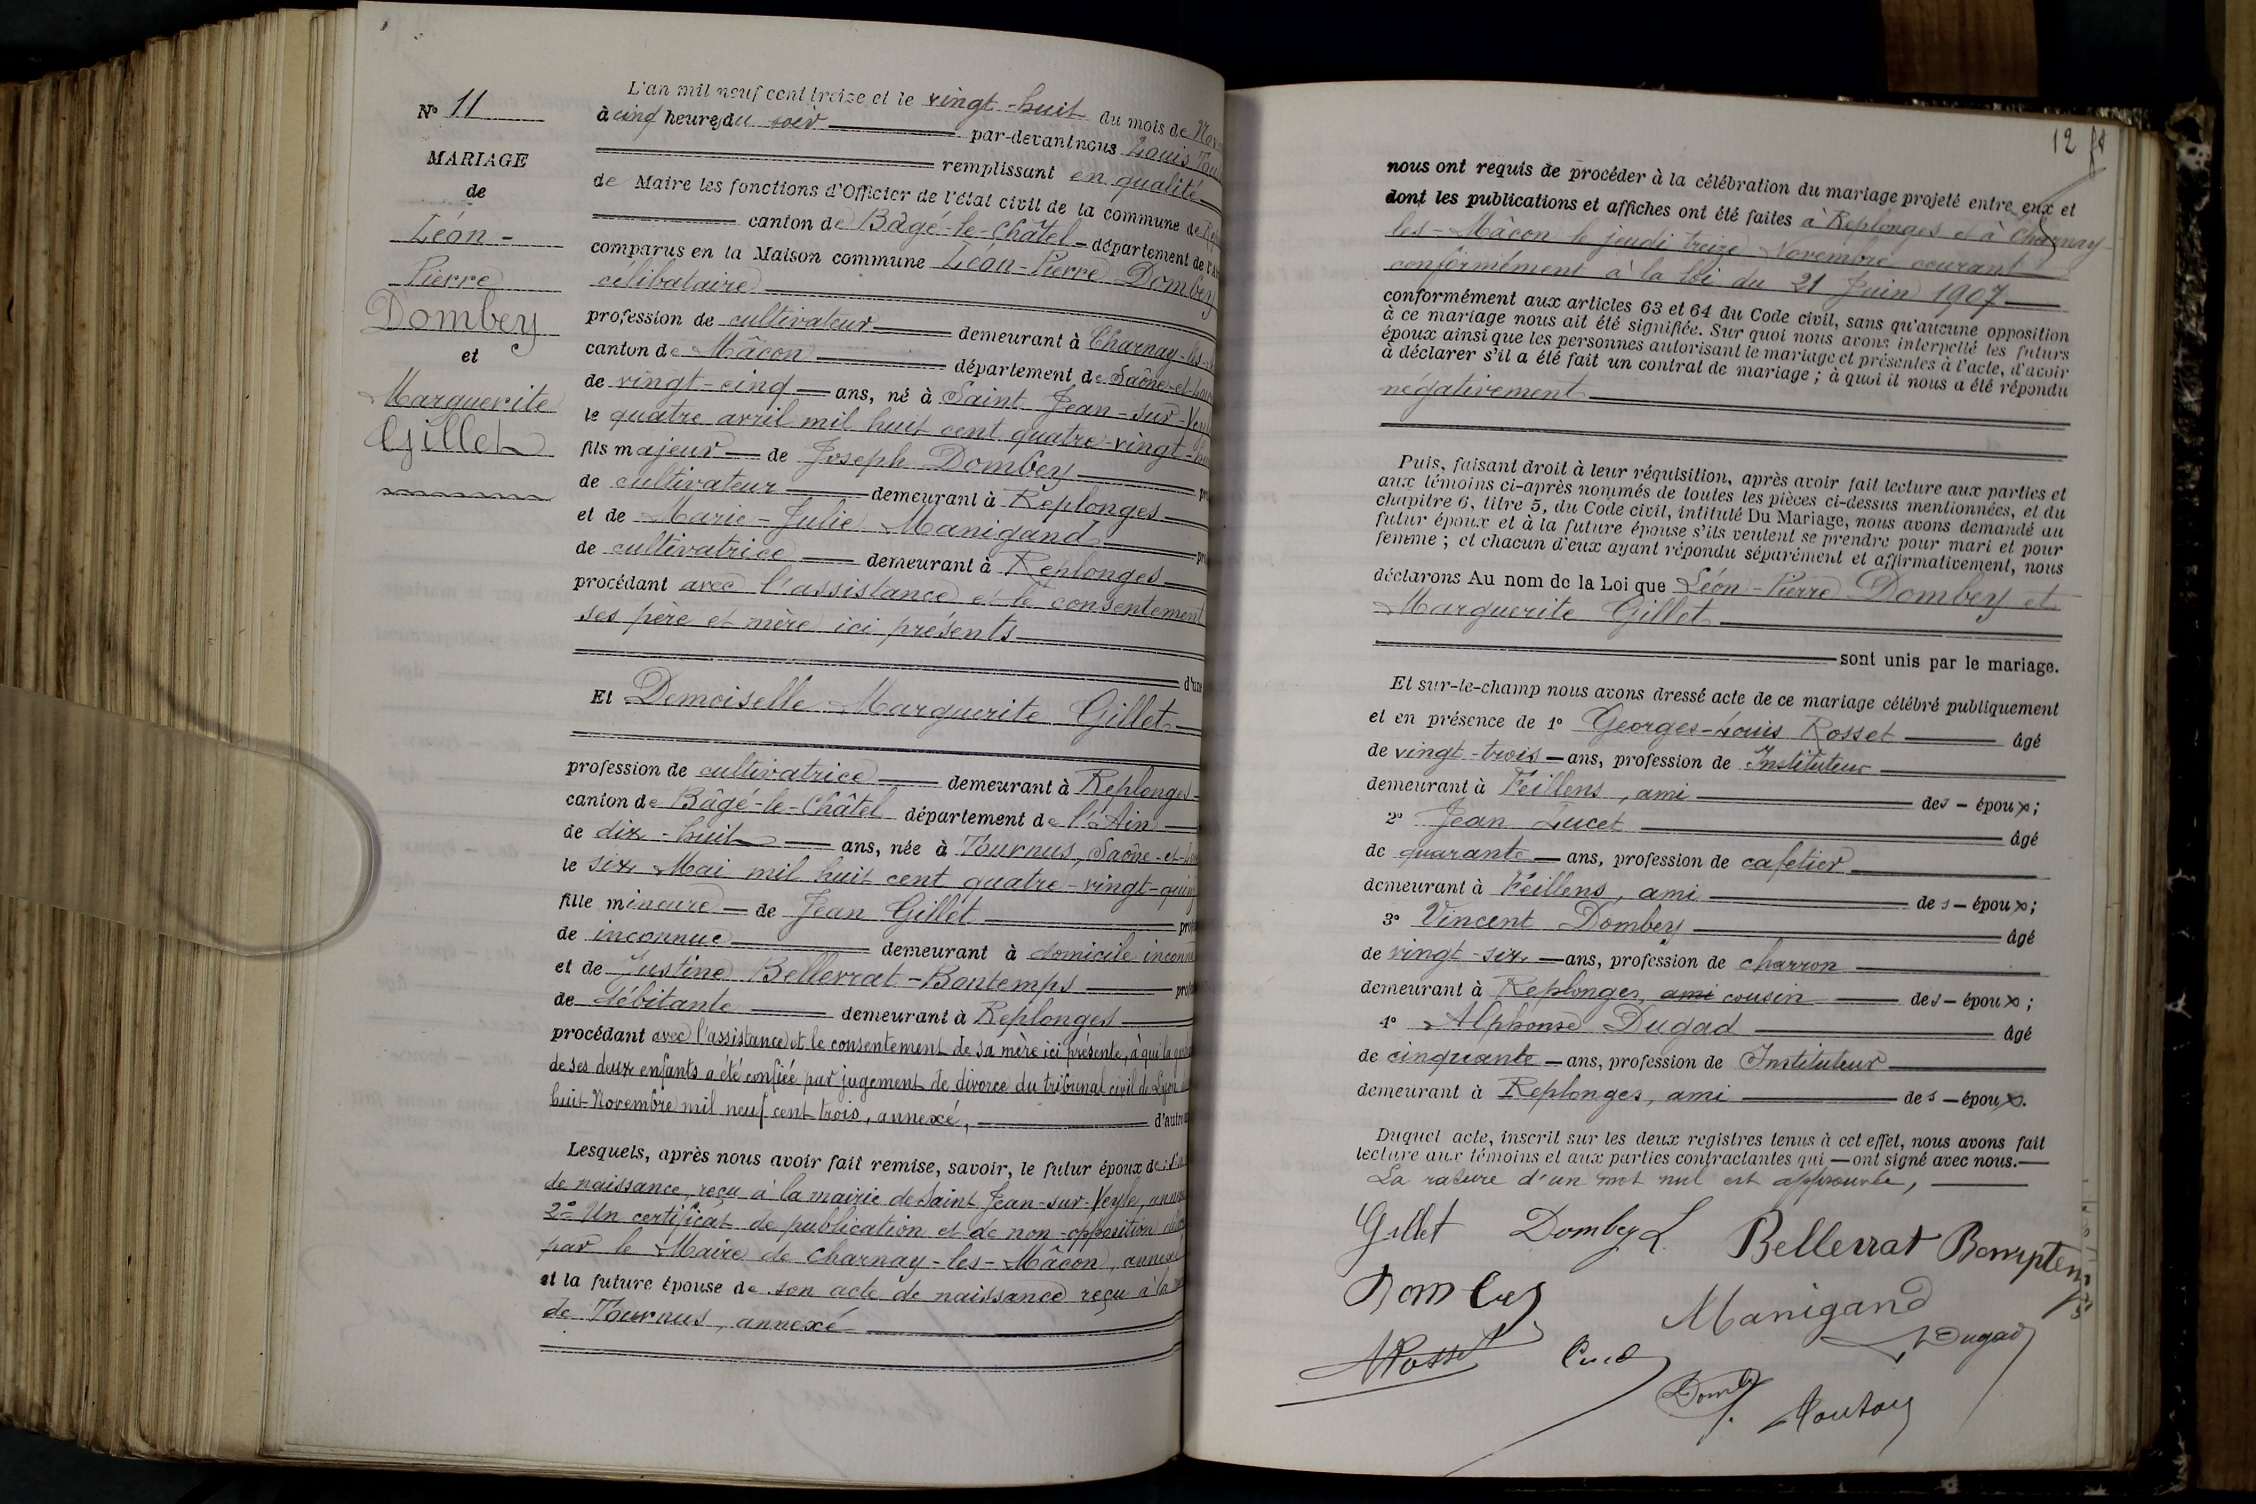 N° 11
MARIAGE
de
Léon -
Pierre
Dombey
et
Marguerite
Gillet
L'an mil neuf cent treize et le vingt-huit du mois de Nov
à cinq heures du soir par-devant nous Louis
remplissant en qualité
de Maire les fonctions d'Officier de l'état civil de la commune de
canton de Bâgé-le-Châtel département de l'
comparus en la Maison commune Léon-Pierre Dombey
célibataire
profession de cultivateur demeurant à Charnay-les-
canton de Mâcon département de Saône-et-Loire
de vingt-cinq ans, né à Saint Jean-sur-Vey
le quatre avril mil huit cent quatre-vingt-hu
fils majeur de Joseph Dombey
de cultivateur demeurant à Replonges
et de Marie-Julie Manigand
de cultivatrice demeurant à Replonges
procédant avec l'assistance et le consentement
ses père et mère ici présents
d'une
Et Demoiselle Marguerite Gillet
profession de cultivatrice demeurant à Replonges
canton de Bâgé-le-Châtel département de l'Ain
de dix-huit ans, née à Tournus, Saône-et-
le six Mai mil huit cent quatre-vingt-quin
fille mineure de Jean Gillet
de inconnue demeurant à domicile inconnu
et de Justine Bellerrat-Bontemps
de débitante demeurant à Replonges
procédant avec l'assistance et le consentement de sa mère ici présente, à qui la
de ses deux enfants a été confiée par jugement de divorce du tribunal civil de Lyon
huit Novembre mil neuf cent trois, annexé, d'autre
Lesquels, après nous avoir fait remise, savoir, le futur époux de
de naissance, reçu à la mairie de Saint Jean-sur-Veyle, annexé
2° Un certificat de publication et de non-opposition
par le Maire de Charnay-les-Mâcon, annexé
et la future épouse de son acte de naissance reçu à la
de Tournus, annexé
12
nous ont requis de procéder à la célébration du mariage projeté entre eux et
dont les publications et affiches ont été faites à Replonges et à Charnay-
les-Mâcon le jeudi treize Novembre courant
conformément à la loi du 21 Juin 1907
conformément aux articles 63 et 64 du Code civil, sans qu'aucune opposition
à ce mariage nous ait été signifiée. Sur quoi nous avons interpellé les futurs
époux ainsi que les personnes autorisant le mariage et présentes à l'acte, d'avoir
à déclarer s'il a été fait un contrat de mariage ; à quoi il nous a été répondu
négativement
Puis, faisant droit à leur réquisition, après avoir fait lecture aux parties et
aux témoins ci-après nommés de toutes les pièces ci-dessus mentionnées, et du
chapitre 6, titre 5, du Code civil, intitulé Du Mariage, nous avons demandé au
futur époux et à la future épouse s'ils veulent se prendre pour mari et pour
femme ; et chacun d'eux ayant répondu séparément et affirmativement, nous
déclarons Au nom de la Loi que Léon-Pierre Dombey et
Marguerite Gillet
sont unis par le mariage.
Et sur-le-champ nous avons dressé acte de ce mariage célébré publiquement
et en présence de 1° Georges-Louis Rosset âgé
de vingt-trois ans, profession de Instituteur
demeurant à Feillens, ami des époux ;
2° Jean Lucet âgé
de quarante ans, profession de cafetier
demeurant à Feillens, ami des époux ;
3° Vincent Dombey âgé
de vingt-six ans, profession de charron
demeurant à Replonges, ami cousin des époux ;
4° Alphonse Dugad âgé
de cinquante ans, profession de Instituteur
demeurant à Replonges, ami des époux.
Duquel acte, inscrit sur les deux registres tenus à cet effet, nous avons fait
lecture aux témoins et aux parties contractantes qui ont signé avec nous.
La rature d'un mot nul est approuvée,
Gillet Dombey L. Bellerrat Bomptemps
Dombey Manigand
Rosset Dugad
Dombey